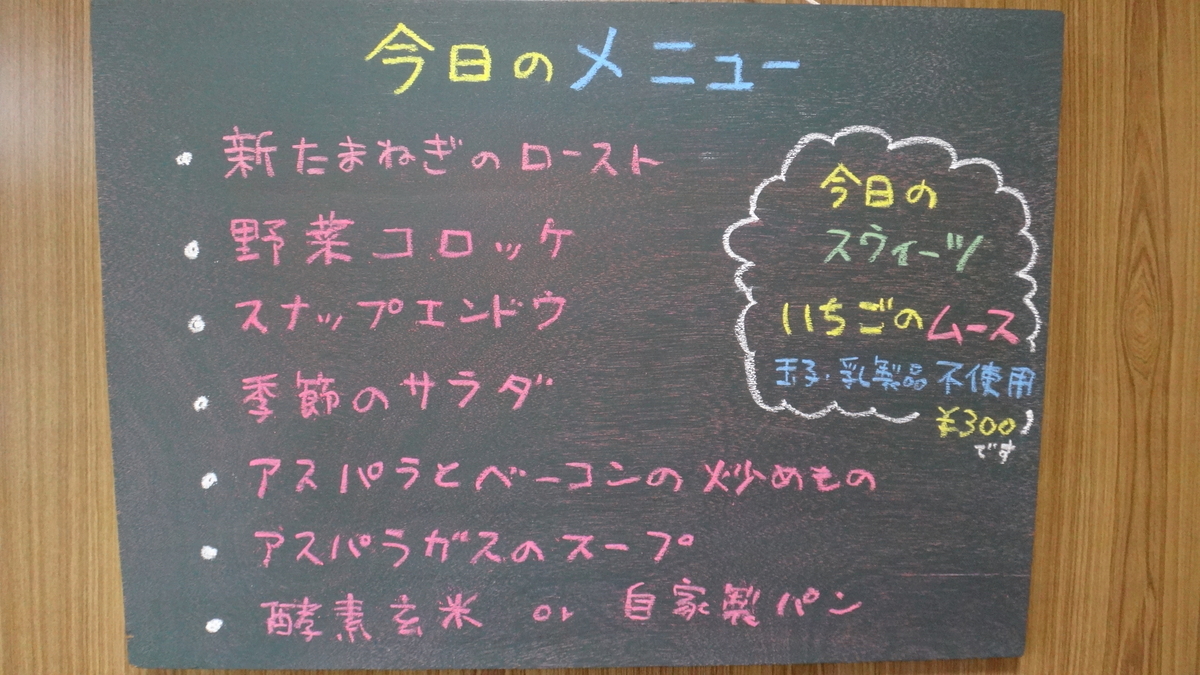 今日のメニュー
• 新たまねぎのロースト
• 野菜コロッケ
• スナップエンドウ
• 季節のサラダ
• アスパラとベーコンの炒めもの
• アスパラガスのスープ
• 酵素玄米 or 自家製パン
今日の
スウィーツ
いちごのムース
玉子・乳製品不使用
¥300
です